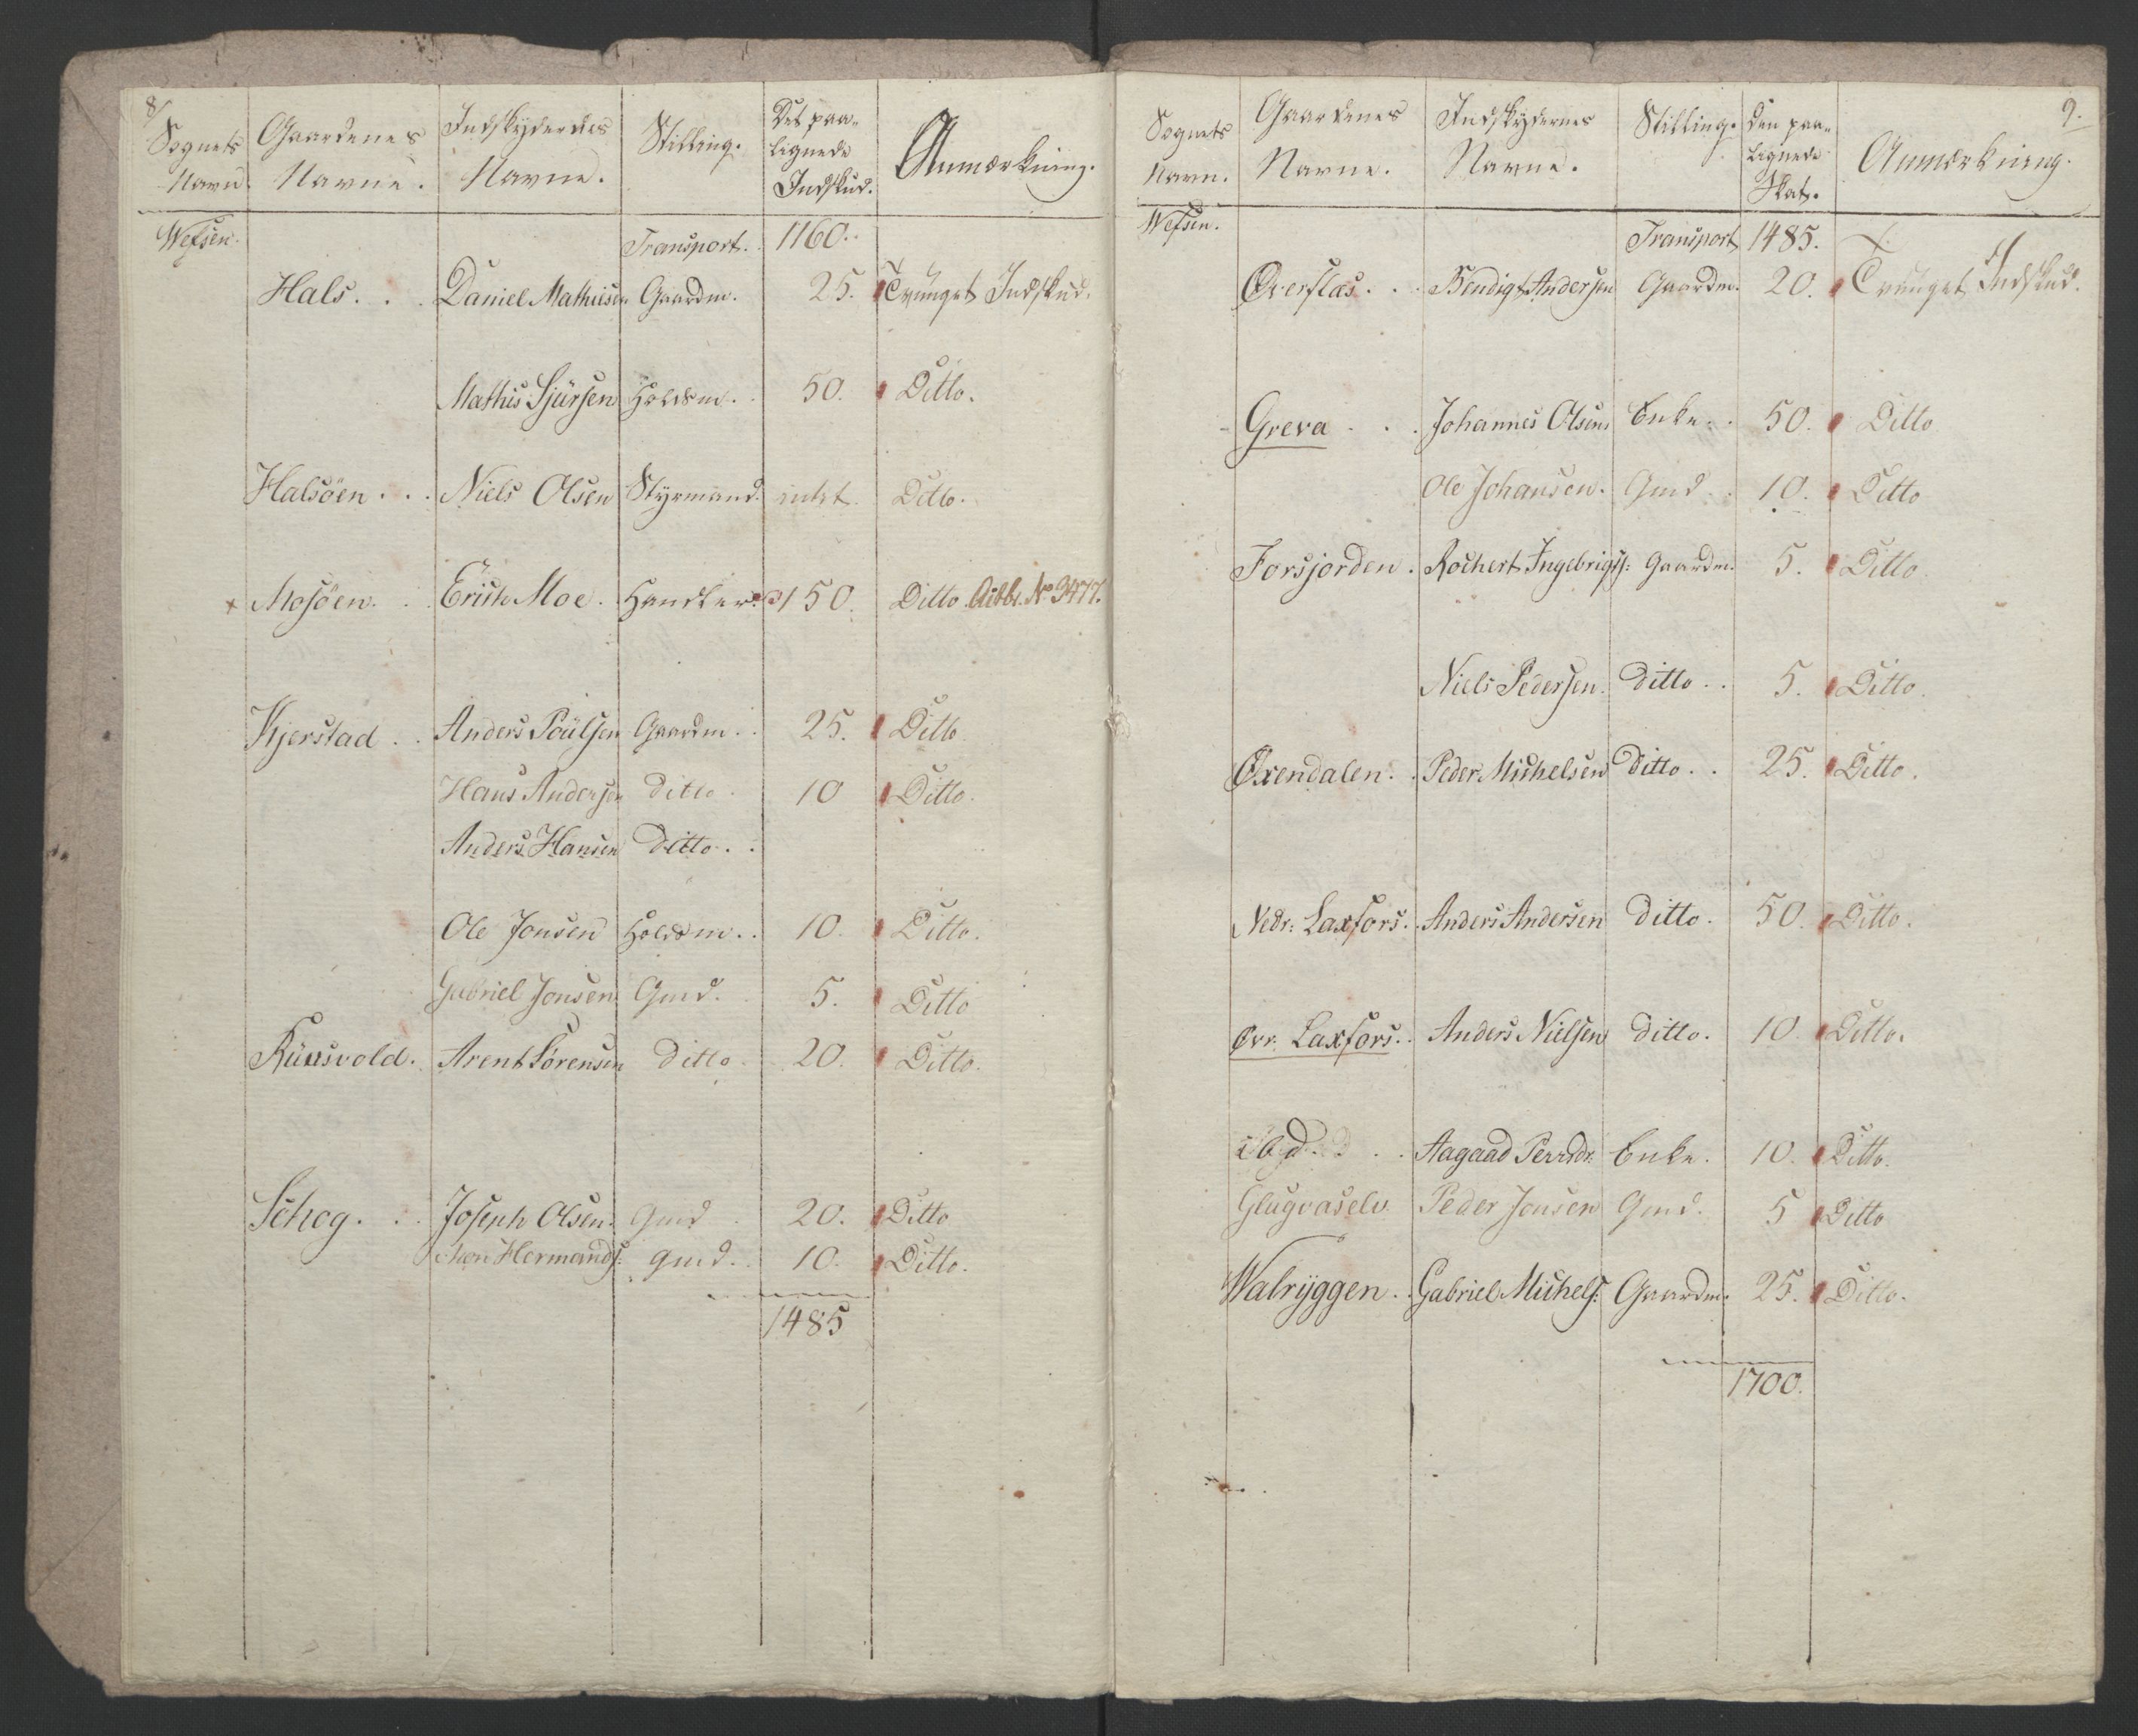 8/
Sognets Navn. Gaardenes Navne. Indskydernes Navne. Stilling. Det paalignede Indskud. Anmærkning.
Wefsen. Transport. 1160.
Hals. Daniel Mathiesen Gaardm. 25. Tvunget Indskud.
Mathis Sjürsen Holdsm. 50. Ditto.
Halsöen. Niels Olsen Styrmand. intet. Ditto.
Mosöen. Erich Moe. Handler. 150. Ditto No 3477.
Kjerstad. Anders Poülsen Gaardm. 25. Ditto
Hans Andersen ditto. 10 Ditto.
Anders Hansen Ditto.
Ole Jonsen Holdsm. 10. Ditto.
Gabriel Jonsen Gmd. 5. Ditto
Arent Sörensen Ditto. 20. Ditto.
Schog. Joseph Olsen. Gmd 20. Ditto
Hermands: Gmd. 10. Ditto.
1485
9.
Sognets Navn. Gaardenes Navne. Indskydernes Navne. Stilling. Den paalignede Skat. Anmærkning.
Wefsen. Transport 1485.
Øverflas. Bendigt Andersen Gaardm. 20. Tvunget Indskud.
Greva Johannes Olsens Enke. 50. Ditto
Ole Johansen. Gmd. 10. Ditto
Forsjorden. Rochert Ingebrigts: Gaardm. 5. Ditto
Niels Pedersen. Ditto. 5. Ditto.
Øxendalen. Peder Michelsen Ditto. 25. Ditto.
Nedr: Laxfors. Anders Andersen Ditto. 50. Ditto.
Øvr. Laxfors. Anders Nielsen Ditto. 10. Ditto.
ibd. Aagaad Enke. 10. Ditto.
Glugvaselv. Peder Jonsen Gmd. 5 Ditto
Walryggen. Gabriel Michels: Gaardm. 25. Ditto.
1700.